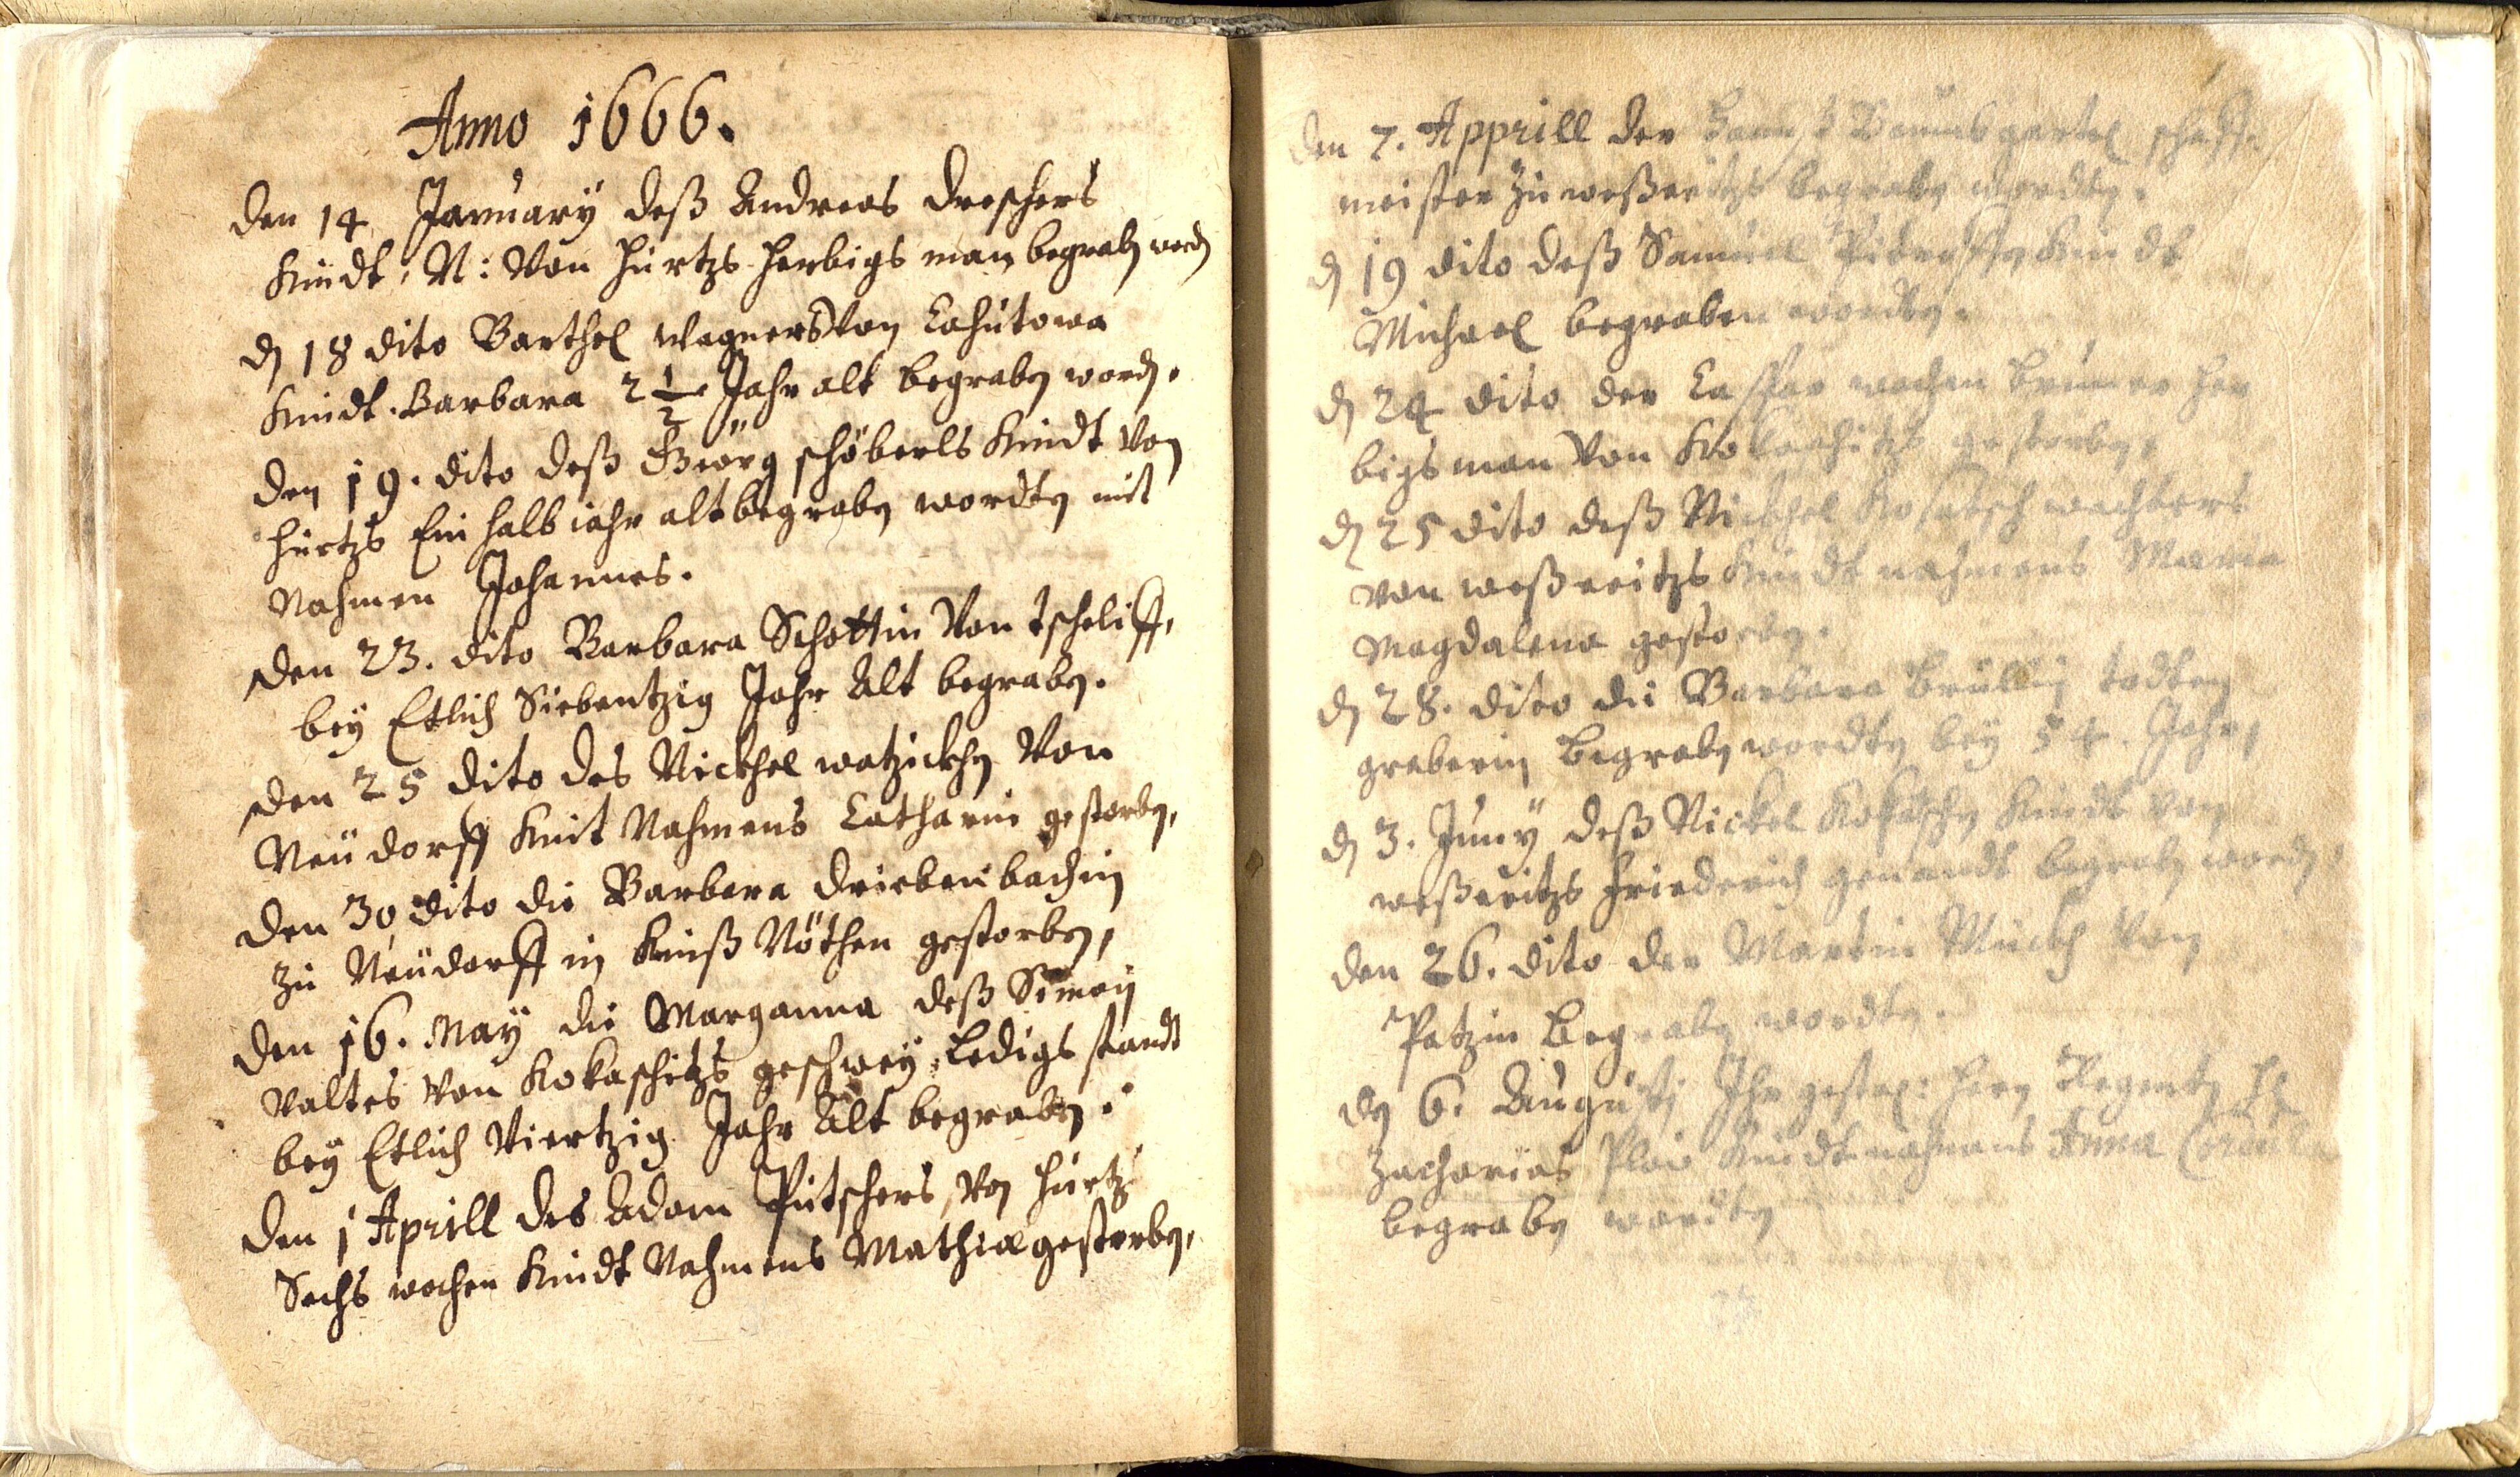 Anno 1666.
Den 14 January deß Andreas Dreschers
Kindt, N: Von Hurtzs Herbigs man begrab word
d 18 dito Barthel Wagners Von Lahutowa
Kindt. Barbara 2 1/2 Jahr alt begraben word.
Den 19. dito deß Geörg schöberls Kindt Von
Hurtzs Ein halb iahr alt begraben wordten mit
Nahmen Johannes.
Den 23. dito Barbara Schottin Von Tscheliff,
bey Etlich Siebentzig Jahr Alt begraben.
Den 25 dito des Nickhel watzickhen Von
Neudorff Kint Nahmens Catharin gestorben,
Den 30 dito die Barbara Driebenbachin
zu Neudorff in Kinß Nöthen gestorben,
Den 16. May die Marganna deß Simon
Valtes Von Kokaschitzs geschwey, Ledigs standt
bey Etlich Viertzig Jahr Alt begraben.
Den 1 Aprill des Adam Putschers, Von Hurtz
Sechs wochen Kindt Nahmens Mathiæ gestorben,
Den 7. Apprill der Baumbgartel schaff-
meister zu weßeritzs begraben wordten.
d 19 dito deß Samuel Kindt
Michael begraben wordten.
d 24 dito der Casper Brunner Her
bigs man Von Kokaschitzs gestorben,
d 25 dito deß Nickhel wachters
von weßeritzs Kindt nahmens Maria
Magdalena gestorben.
d 28. dito die Barbara Brüllin todten
graberin Begraben wordten bey 54. Jahr,
d 3. Juny deß Nickel Kindt von
weßeritzs Friederich genandt begraben word,
Den 26. dito der Martin Mückh Von
Patzin Begraben wordten.
den 6. Augusti Ihr gestr: Herrn Regenten H:
Zacharias Kindt nahmens Anna
begraben wordten